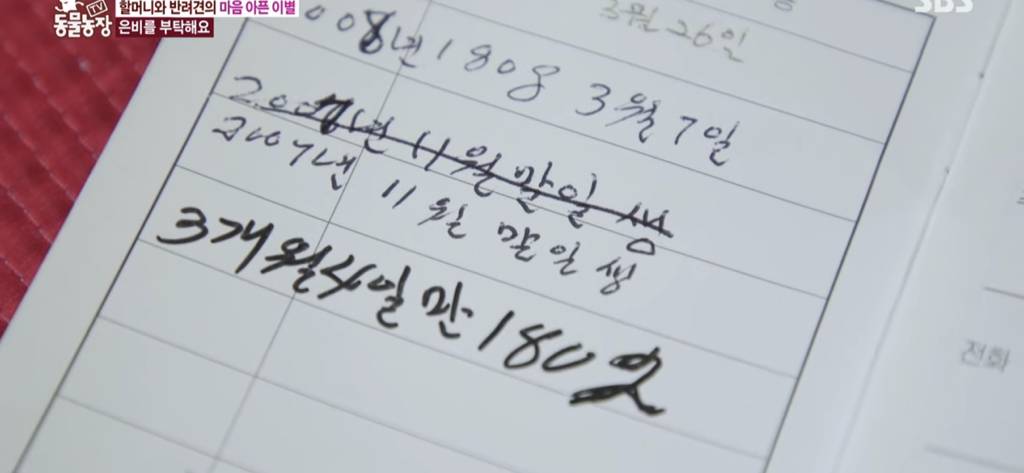 TV
동물농장
할머니와 반려견의 마음 아픈 이별
은비를 부탁해요
SBS
3월 26일
008년 1808 3월 7일
2007년 11월 말일 생
2007년 11월 말일 생
3개월 4일 만 180
전화